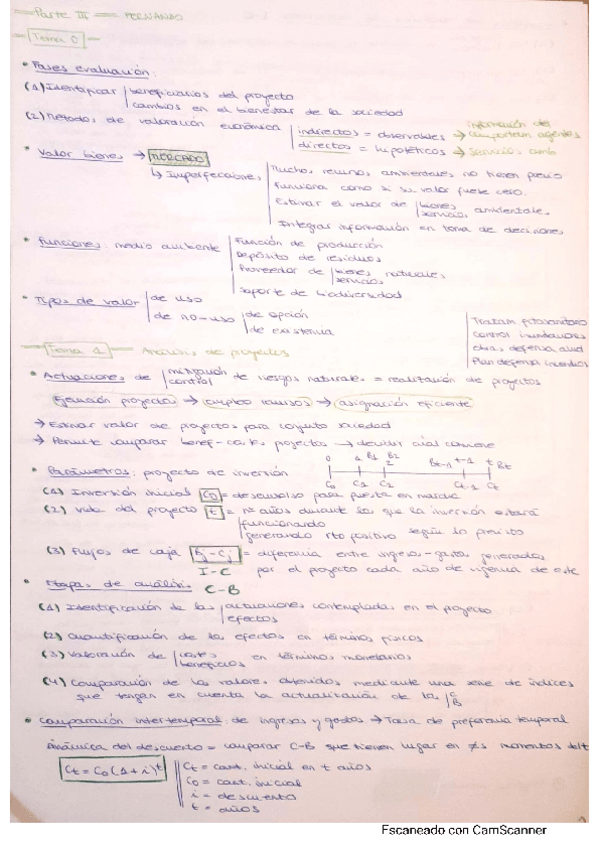 Parte III — FERNANDO
Tema 0
• Fases evaluación:
(1) Identificar | beneficiarios del proyecto
cambios en el bienestar de la sociedad
(2) Métodos de valoración económica | indirectos = observables → información del comportam agentes
directos = hipotéticos → servicios amb
• Valor bienes → MERCADO
↳ Imperfecciones | Muchos recursos ambientales no tienen precio
funciona como si su valor fuese cero.
Estimar el valor de | bienes servicios ambientales
Integrar información en toma de decisiones
• Funciones: medio ambiente | Función de producción
Depósito de residuos
Proveedor de | bienes servicios naturales
Soporte de biodiversidad
• Tipos de valor | de uso
de no-uso | de opción
de existencia
Tratam fitosanitario
control inundaciones
obras defensa alud
Plan defensa incendios
Tema 1 — Análisis de proyectos
• Actuaciones de | mitigación control de riesgos naturales = realización de proyectos
Ejecución proyectos → empleo recursos → asignación eficiente
→ Estimar valor de proyectos para conjunto sociedad
→ Permite comparar benef-costes proyectos → decidir cuál conviene
• Parámetros: proyecto de inversión
0 1 B1 B2 2 Bt-1 t-1 t Bt
C0 C1 C2 Ct-1 Ct
(1) Inversión inicial C0 = desembolso para puesta en marcha
(2) vida del proyecto t = nº años durante los que la inversión estará
| funcionando
generando rto positivo según lo previsto
(3) Flujos de caja Bj - Cj = diferencia entre ingresos - gastos generados
I - C por el proyecto cada año de vigencia de este
C - B
• Etapas de análisis
(1) Identificación de las | actuaciones contempladas en el proyecto
efectos
(2) Cuantificación de los efectos en términos físicos
(3) Valoración de | costes beneficios en términos monetarios
(4) Comparación de los valores obtenidos mediante una serie de índices
que tengan en cuenta la actualización de los | C B
• Comparación intertemporal: de ingresos y gastos → Tasa de preferencia temporal
Dinámica del descuento = comparar C-B que tienen lugar en ≠s momentos del t
Ct = C0 (1 + i)^t
Ct = cant. inicial en t años
C0 = cant. inicial
i = descuento
t = años
Escaneado con CamScanner